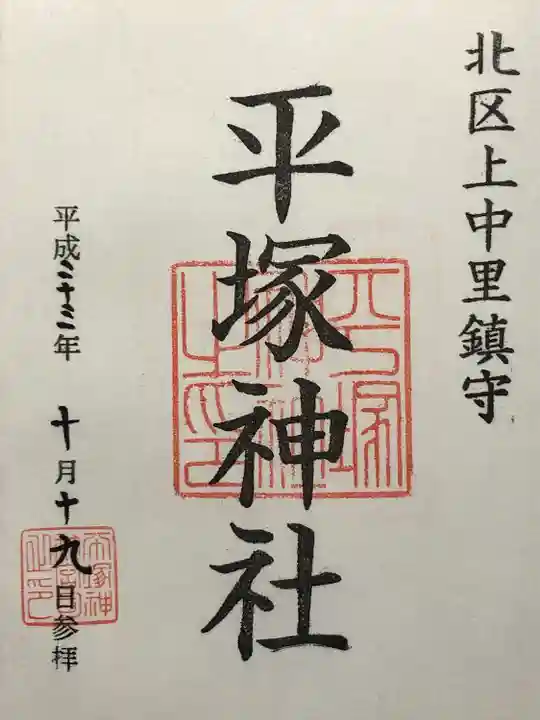 北区上中里鎮守
平塚神社
平塚神社之印
平成二十三年 十月十九日参拝